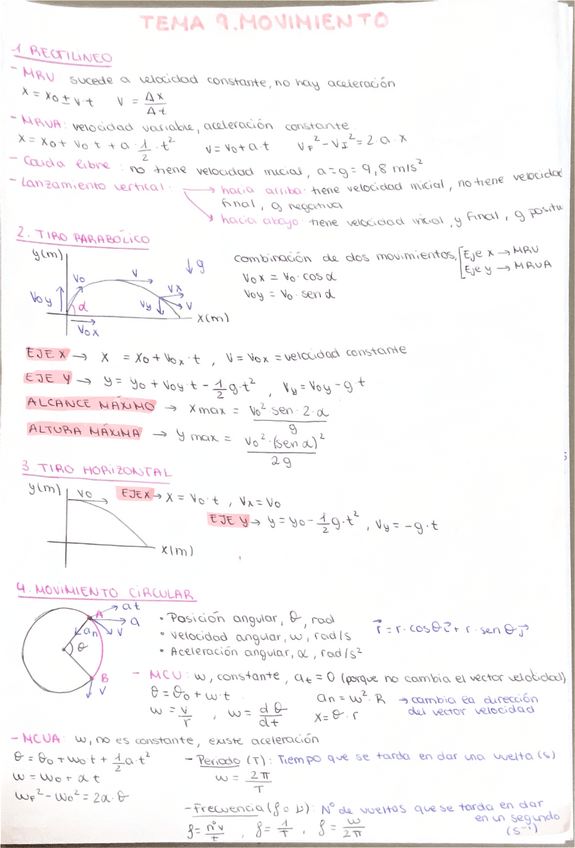 TEMA 9. MOVIMIENTO
1 RECTILINEO
- MRU sucede a velocidad constante, no hay aceleración
x = x₀ ± v·t   v = Δx/Δt
- MRUA: velocidad variable, aceleración constante
x = x₀ + v₀ t + a·1/2·t²   v = v₀ + a t   v_F² - v_I² = 2 a · x
- Caida libre: no tiene velocidad inicial, a = g = 9,8 m/s²
- Lanzamiento vertical: → hacia arriba: tiene velocidad inicial, no tiene velocidad
final, g negativa
→ hacia abajo tiene velocidad inicial y final, g positi
2. TIRO PARABÓLICO
y(m) v₀ v ↓g v₀y α v₀x vx vy v x(m)
combinación de dos movimientos, [Eje x → MRU
Eje y → MRUA
v₀x = v₀ · cos α
v₀y = v₀ · sen α
EJE X → x = x₀ + v₀x · t, v = v₀x = velocidad constante
EJE Y → y = y₀ + v₀y · t - 1/2 g·t², vy = v₀y - g t
ALCANCE MÁXIMO → x max = v₀² sen · 2 · α / g
ALTURA MÁXIMA → y max = v₀² · (sen α)² / 2g
3 TIRO HORIZONTAL
y(m) v₀ x(m)
EJE X → x = v₀ · t, vx = v₀
EJE Y → y = y₀ - 1/2 g·t², vy = -g·t
4. MOVIMIENTO CIRCULAR
A at a an v θ B v
• Posición angular, θ, rad
• velocidad angular, ω, rad/s
• Aceleración angular, α, rad/s²
r⃗ = r · cos θ i⃗ + r · sen θ j⃗
- MCU: ω, constante, at = 0 (porque no cambia el vector velocidad)
θ = θ₀ + ω·t   an = ω² · R → cambia la dirección
del vector velocidad
ω = v/r, ω = dθ/dt   x = θ · r
- MCUA: ω, no es constante, existe aceleración
θ = θ₀ + ω₀ t + 1/2 α·t²
ω = ω₀ + α t
ω_F² - ω₀² = 2α·θ
- Periodo (T): Tiempo que se tarda en dar una vuelta (s)
ω = 2π/T
- Frecuencia (f o ν): Nº de vueltas que se tarda en dar
en un segundo
(s⁻¹)
f = nºv/t, f = 1/T, f = ω/2π